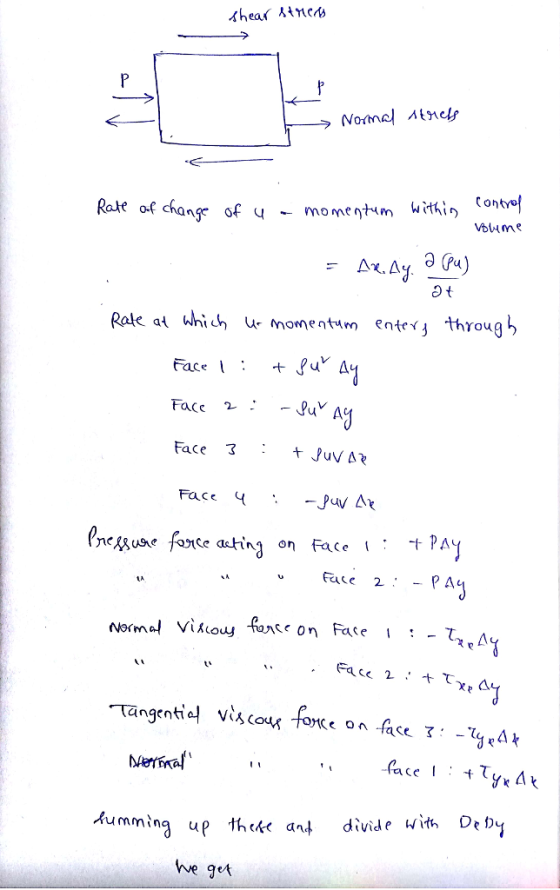 shear stress
P
P
Normal stress
Rate of change of u - momentum within control volume
= Δx.Δy. ∂(ρu)/∂t
Rate at which u-momentum enters through
Face 1 : + ρu² Δy
Face 2 : - ρu² Δy
Face 3 : + ρuv Δx
Face 4 : - ρuv Δx
Pressure force acting on Face 1 : + PΔy
" " " Face 2 : - PΔy
Normal viscous force on Face 1 : - τxx Δy
" " " . Face 2 : + τxx Δy
Tangential viscous force on face 3 : - τyx Δx
" " " face 1 : + τyx Δx
summing up these and divide with DxDy
we get